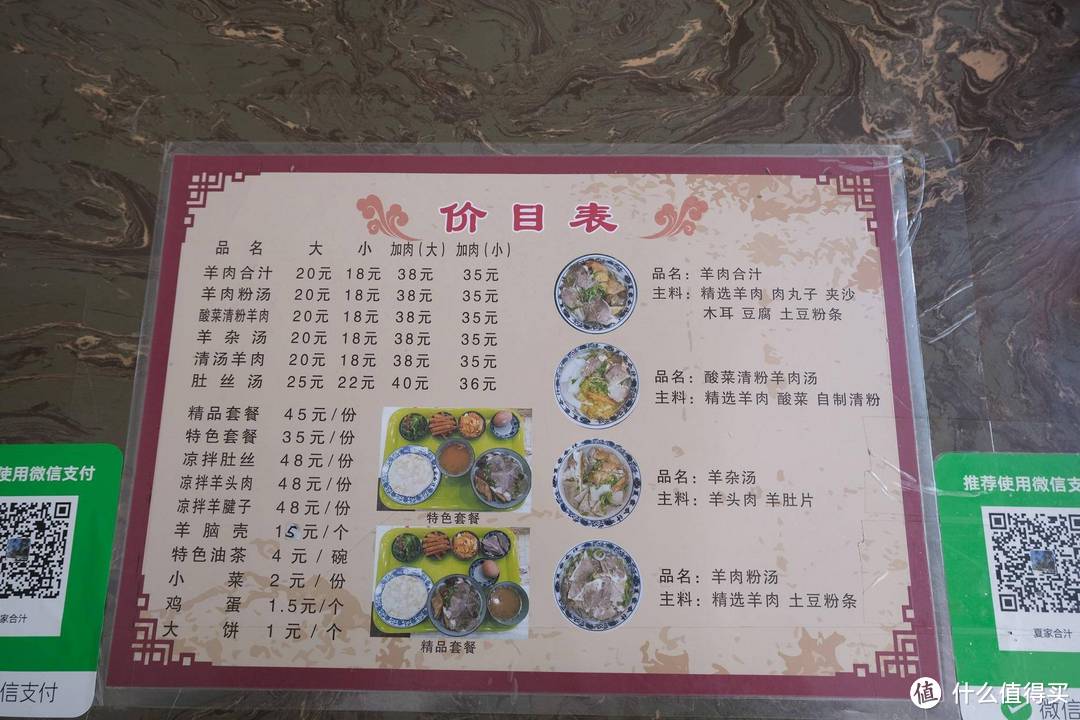 价目表
品名 大 小 加肉(大) 加肉(小)
羊肉合汁 20元 18元 38元 35元
羊肉粉汤 20元 18元 38元 35元
酸菜清粉羊肉 20元 18元 38元 35元
羊杂汤 20元 18元 38元 35元
清汤羊肉 20元 18元 38元 35元
肚丝汤 25元 22元 40元 36元
精品套餐 45元/份
特色套餐 35元/份
凉拌肚丝 48元/份
凉拌羊头肉 48元/份
凉拌羊腱子 48元/份
羊脑壳 15元/个
特色油茶 4元/碗
小菜 2元/份
鸡蛋 1.5元/个
大饼 1元/个
特色套餐
精品套餐
品名：羊肉合汁
主料：精选羊肉 肉丸子 夹沙
木耳 豆腐 土豆粉条
品名：酸菜清粉羊肉汤
主料：精选羊肉 酸菜 自制清粉
品名：羊杂汤
主料：羊头肉 羊肚片
品名：羊肉粉汤
主料：精选羊肉 土豆粉条
使用微信支付
家合汁
信支付
推荐使用微信支
夏家合汁
微信
值 什么值得买